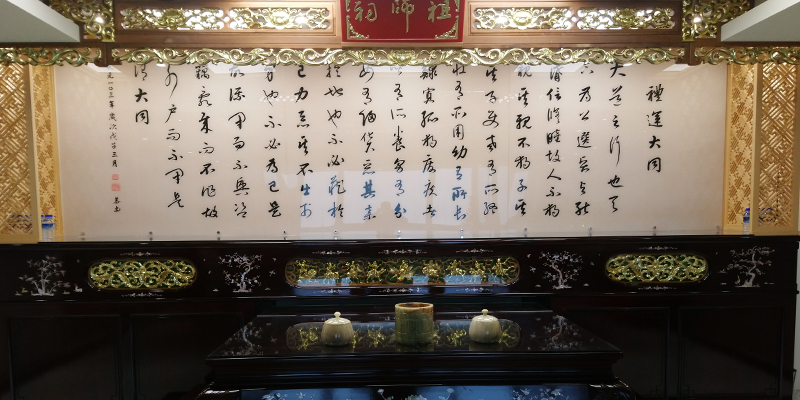 祖師祠
禮運大同
大道之行也天
下為公選賢與能
講信修睦故人不獨
親其親不獨子其
子使老有所終
壯有所用幼有所長
矜寡孤獨廢疾者
皆有所養男有分
女有歸貨惡其棄
於地也不必藏於
己力惡其不出於
身也不必為己是
故謀閉而不興盜
竊亂賊而不作故
外戶而不閉是
謂大同
年歲次 三月